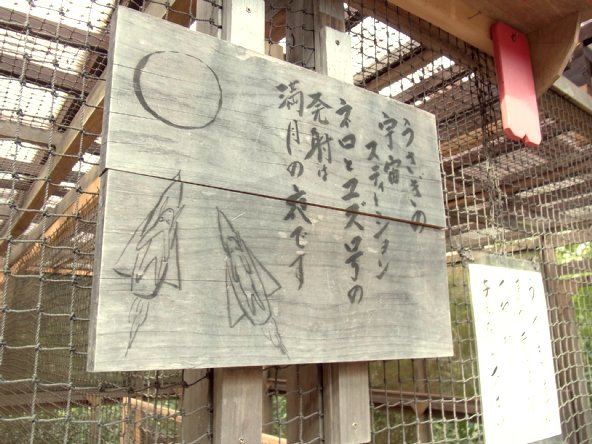 うさぎの
宇宙
スティーション
ネロとユズ号の
発射は
満月の夜です